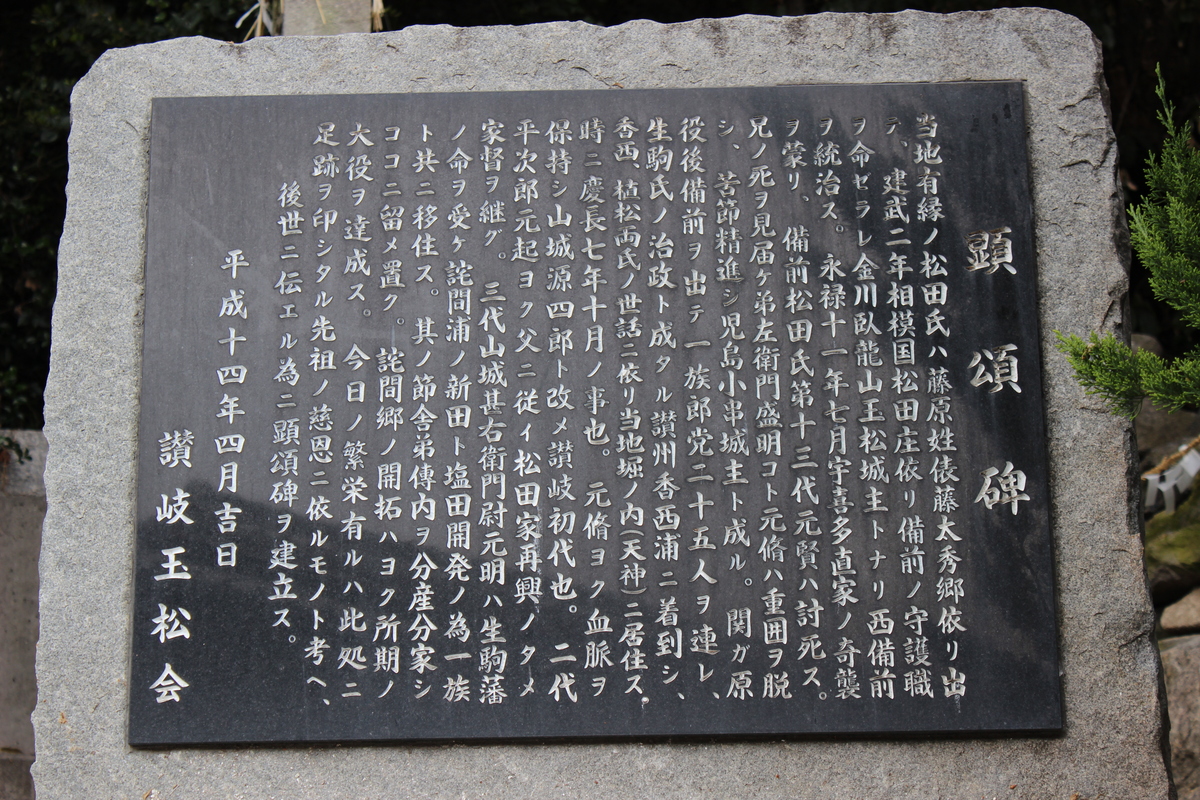 顕頌碑
当地有縁ノ松田氏ハ藤原姓俵藤太秀郷依リ出
デ、建武二年相模国松田庄依リ備前ノ守護職
ヲ命ゼラレ金川臥龍山玉松城主トナリ西備前
ヲ統治ス。永禄十一年七月宇喜多直家ノ奇襲
ヲ蒙リ、備前松田氏第十三代元賢ハ討死ス。
兄ノ死ヲ見届ケ弟左衛門盛明コト元脩ハ重囲ヲ脱
シ、苦節精進シ児島小串城主ト成ル。関ガ原
役後備前ヲ出テ一族郎党二十五人ヲ連レ、
生駒氏ノ治政ト成タル讃州香西浦ニ着到シ、
香西、植松両氏ノ世話ニ依リ当地堀ノ内(天神)ニ居住ス、
時ニ慶長七年十月ノ事也。元脩ヨク血脈ヲ
保持シ山城源四郎ト改メ讃岐初代也。二代
平次郎元起ヨク父ニ従イ松田家再興ノタメ
家督ヲ継グ。三代山城甚右衛門尉元明ハ生駒藩
ノ命ヲ受ケ詫間浦ノ新田ト塩田開発ノ為一族
ト共ニ移住ス。其ノ節舎弟傳内ヲ分産分家シ
ココニ留メ置ク。詫間郷ノ開拓ハヨク所期ノ
大役ヲ達成ス。今日ノ繁栄有ルハ此処ニ
足跡ヲ印シタル先祖ノ慈恩ニ依ルモノト考ヘ、
後世ニ伝エル為ニ顕頌碑ヲ建立ス。
平成十四年四月吉日
讃岐玉松会